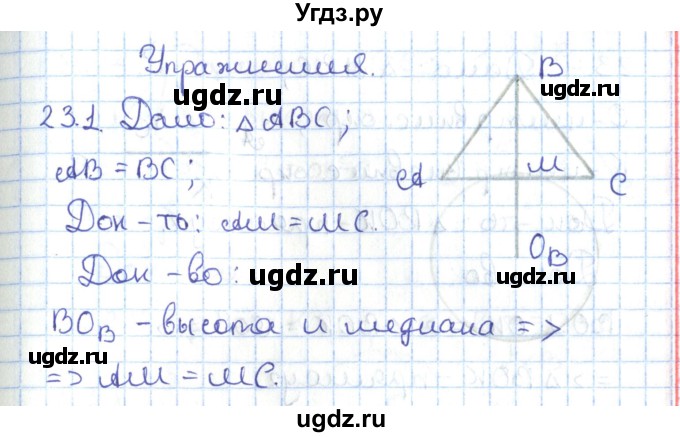 Угдз.ру
Упражнения.
23.1 Дано: △ ABC;
AB = BC;
Док-ть: AM = MC.
Док-во:
BO_B - высота и медиана =>
=> AM = MC.
B
A
M
C
O_B
ugdz.ru
ugdz.ru
ugdz.ru
ugdz.ru
ugdz.ru
ugdz.ru
ugdz.ru
ugdz.ru